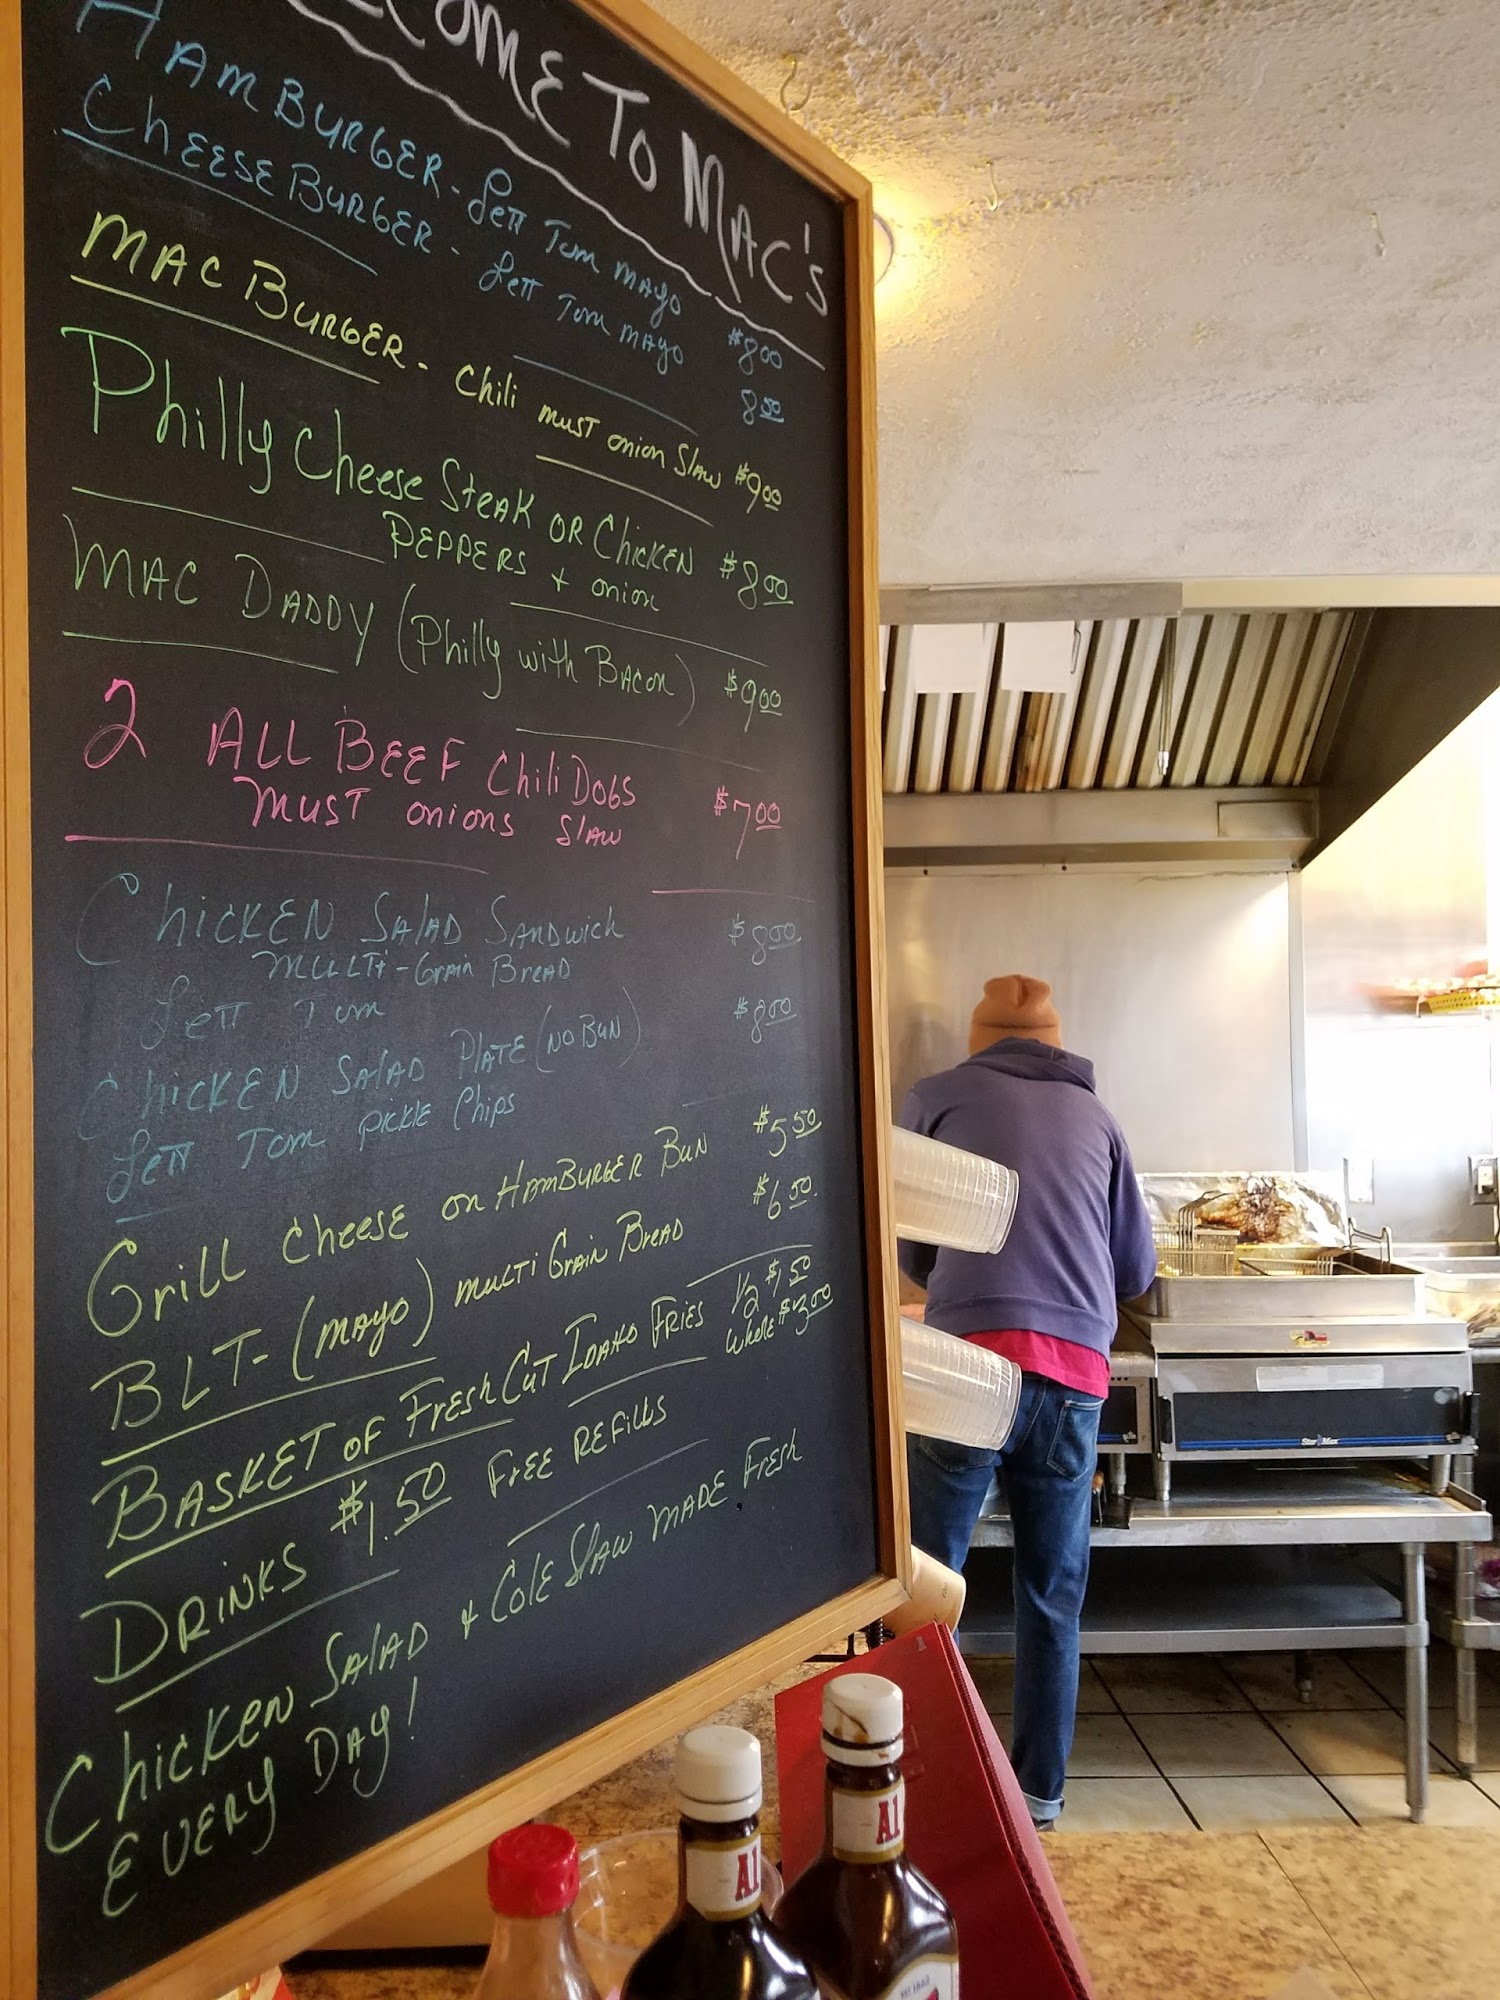 COME TO MAC'S
HAMBURGER - Lett Tom mayo $8.00
CHEESEBURGER - Lett Tom mayo 8.50
MAC BURGER - Chili must onion Slaw $9.00
Philly Cheese Steak OR Chicken $8.00
PEPPERS + onion
MAC DADDY (Philly with Bacon) $9.00
2 ALL BEEF Chili Dogs $7.00
Must onions Slaw
Chicken Salad Sandwich $8.00
MULTi-Grain Bread
Lett Tom
Chicken Salad Plate (No Bun) $8.00
Lett Tom pickle Chips
Grill Cheese on HAMBURGER Bun $5.50
BLT - (mayo) multi Grain Bread $6.50
BASKET of Fresh Cut Idaho Fries 1/2 $1.50
whole $3.00
DRINKS $1.50 Free Refills
Chicken Salad + Cole Slaw Made Fresh
Every Day!
Star Max
A1
A1